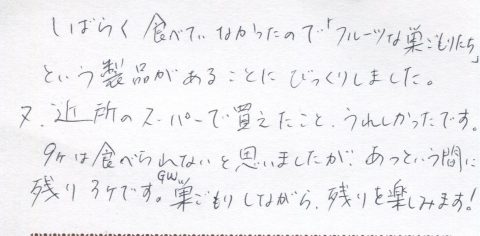 しばらく食べていなかったので「フルーツな巣ごもりたち」
という製品があることにびっくりしました。
又、近所のスーパーで買えたこと、うれしかったです。
9ヶは食べられないと思いましたが、あっという間に
残り3ケです。GW巣ごもりしながら、残りを楽しみます!